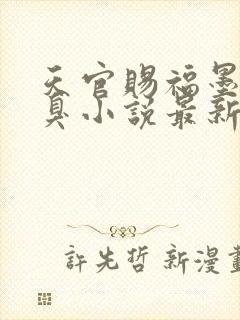 天官賜福墨
臭小説最新
許先哲 新漫畫